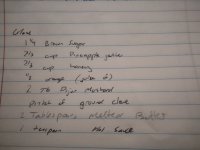 Glaze
1/4 Brown Sugar
2/3 cup Pineapple juice
2/3 cup honey
1/2 orange (juice of)
2 TB Dijon Mustard
pinch of ground clove
2 Tablespoons Melted Butter
1 teaspoon